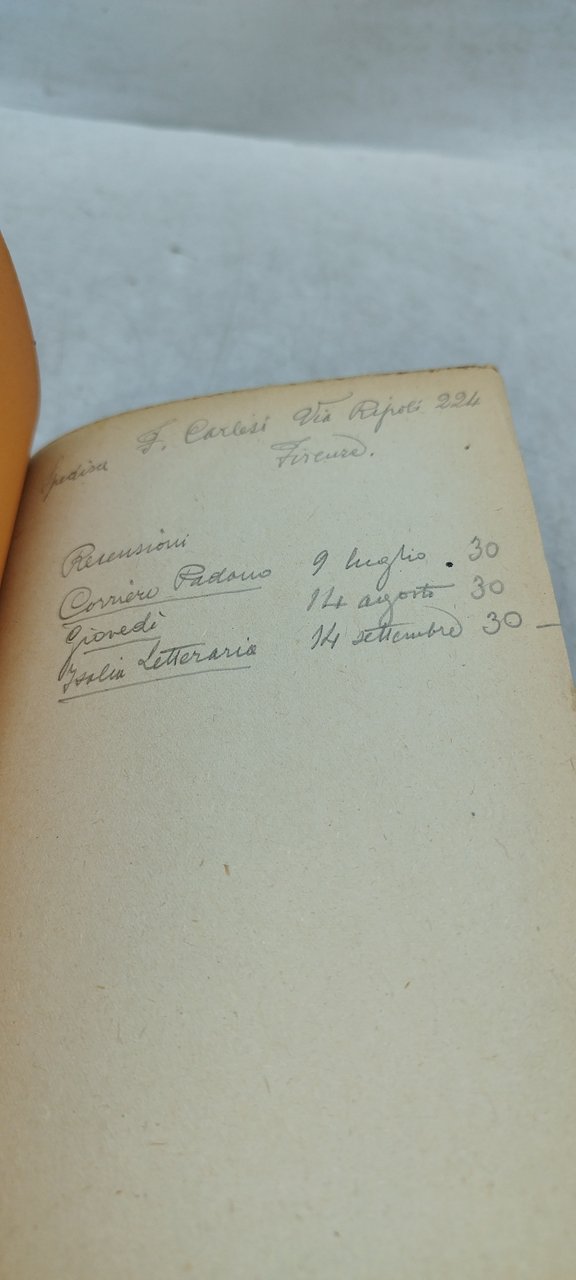 F. Carlesi Via Ripoli 224
Firenze.
Recensioni
Corriere Padano 9 luglio . 30
Giovedì 14 agosto 30
Italia Letteraria 14 settembre 30 –